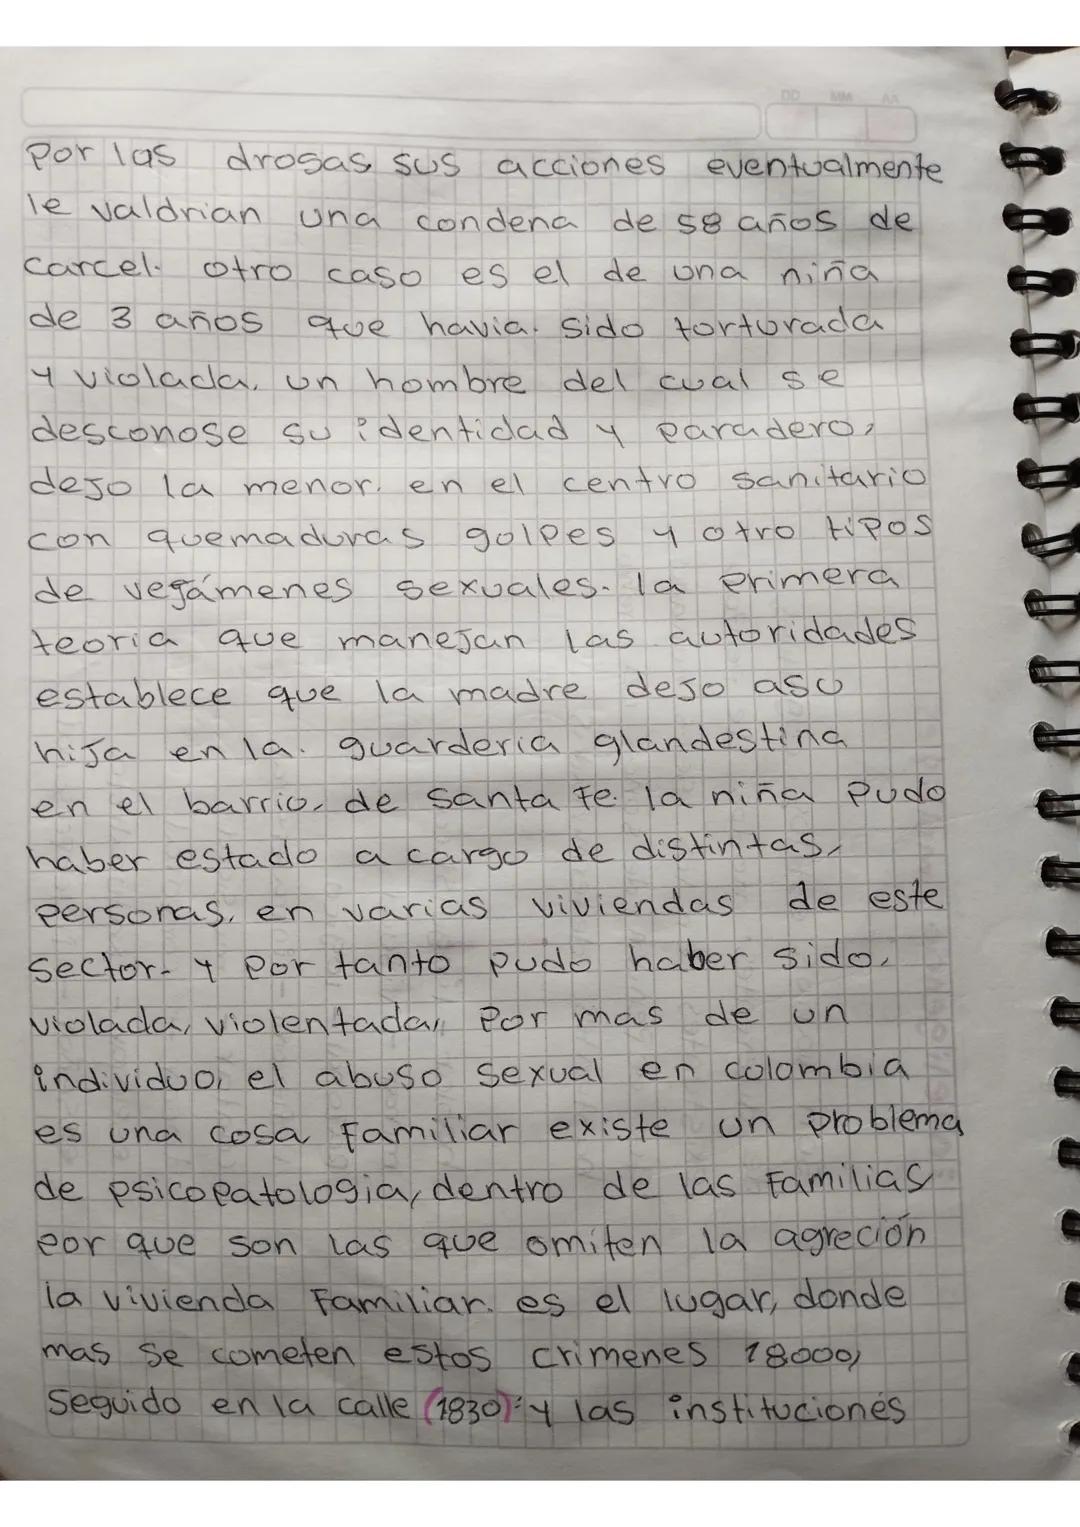 DD MM AA
por las drogas sus acciones eventualmente
le valdrian una condena de 58 años de
carcel. otro caso es el de una niña
de 3 años que havia. sido torturada
y violada. un hombre del cual se
desconose su identidad y paradero,
dejo la menor. en el centro sanitario
con quemaduras golpes y otro tipos
de vegámenes sexuales. la primera
teoria que manejan las autoridades
establece que la madre dejo asu
hija en la. guarderia glandestina
en el barrio. de santa Fe. la niña pudo
haber estado a cargo de distintas,
personas. en varias viviendas de este
sector- y por tanto pudo haber sido.
violada, violentada, por mas de un
individuo, el abuso sexual en colombia
es una cosa familiar existe un problema
de psicopatologia, dentro de las Familias
por que son las que omiten la agreción
la vivienda Familiar. es el lugar, donde
mas se cometen estos crimenes 18000,
Seguido en la calle (1830): y las institucionés